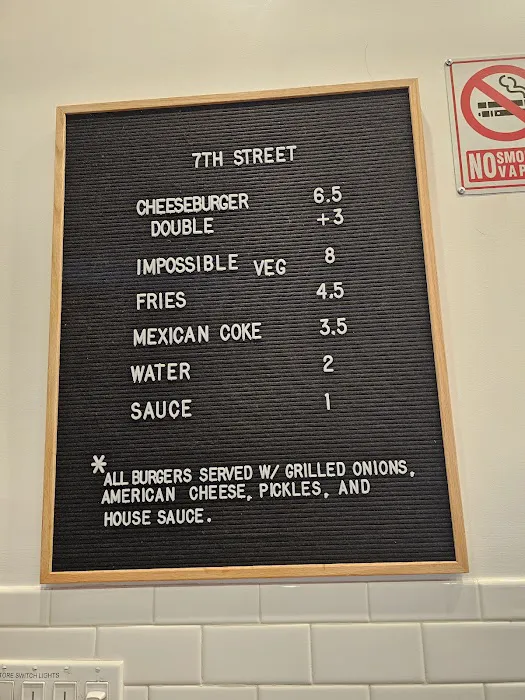 7TH STREET
CHEESEBURGER 6.5
DOUBLE +3
IMPOSSIBLE VEG 8
FRIES 4.5
MEXICAN COKE 3.5
WATER 2
SAUCE 1
*ALL BURGERS SERVED W/ GRILLED ONIONS,
AMERICAN CHEESE, PICKLES, AND
HOUSE SAUCE.
NO SMO
VAP
TORE SWITCH LIGHTS